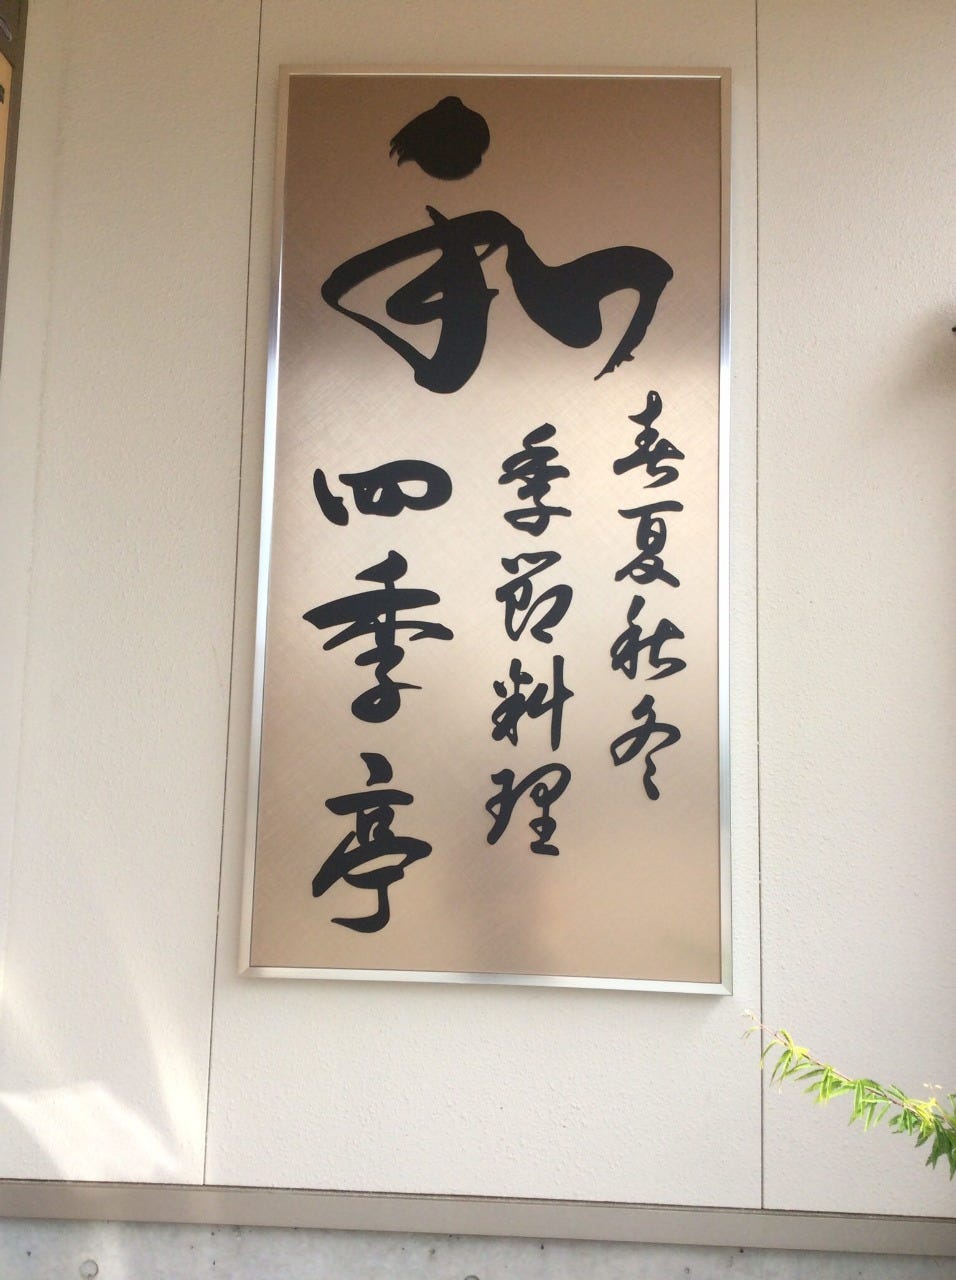 和
春夏秋冬
季節料理
四季亭